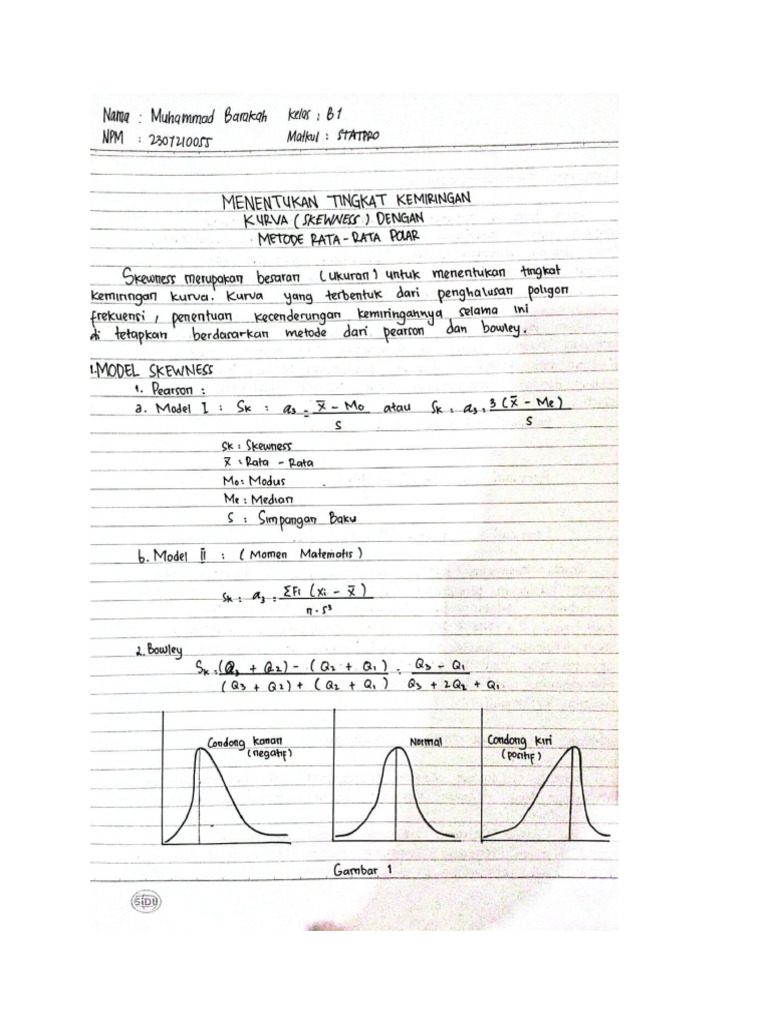 Nama : Muhammad Barakah Kelas : B1
NPM : 2307210055 Matkul : STATPRO
MENENTUKAN TINGKAT KEMIRINGAN
KURVA (SKEWNESS) DENGAN
METODE RATA-RATA POLAR
Skewness merupakan besaran (ukuran) untuk menentukan tingkat
kemiringan kurva. Kurva yang terbentuk dari penghalusan poligon
frekuensi, penentuan kecenderungan kemiringannya selama ini
di tetapkan berdasarkan metode dari pearson dan bowley.
1. MODEL SKEWNESS
1. Pearson :
a. Model I : Sk : a3 = x̄ - Mo / S atau Sk : a3 : 3 (x̄ - Me) / S
Sk : Skewness
x̄ : Rata - Rata
Mo : Modus
Me : Median
S : Simpangan Baku
b. Model II : (Momen Matematis)
Sk : a3 : ΣFi (xi - x̄) / n . s³
2. Bowley
Sk : (Q3 + Q2) - (Q2 + Q1) / (Q3 + Q2) + (Q2 + Q1) : Q3 - Q1 / Q3 + 2Q2 + Q1
Condong kanan
(negatif)
Normal
Condong kiri
(positif)
Gambar 1
SIDU